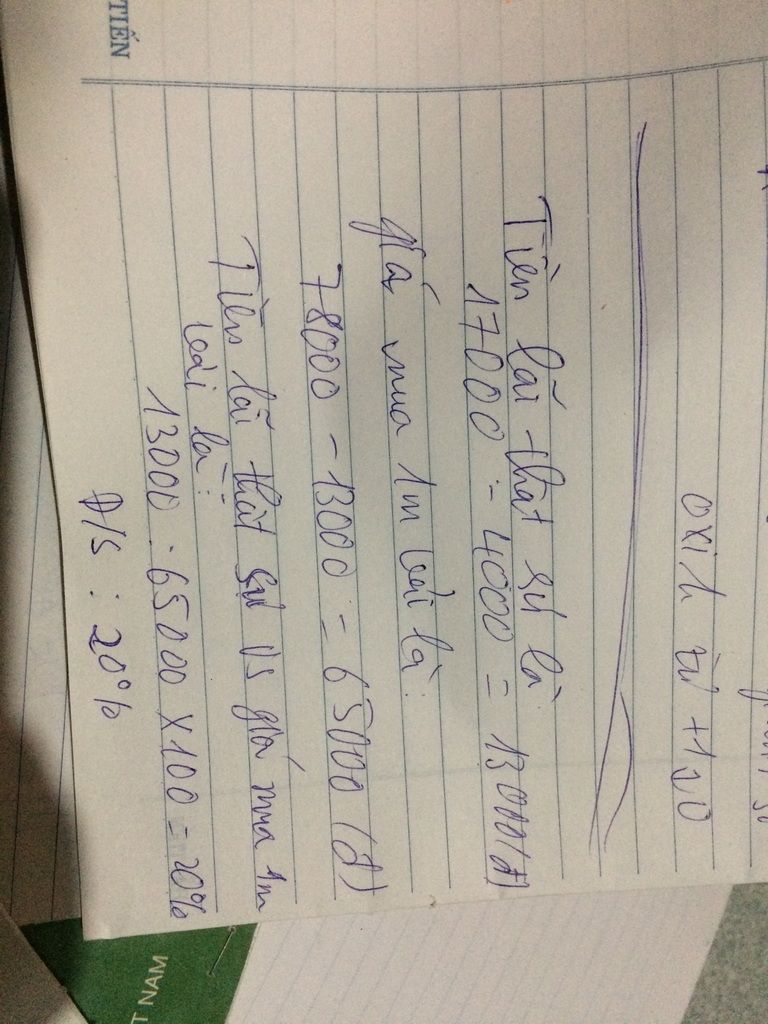 TIẾN
oxit
Tiền lãi thật sự là
17000 - 4000 = 13000 (đ)
giá mua 1m vải là:
78000 - 13000 = 65000 (đ)
Tiền lãi thật sự vs giá mua 1m
vải là:
13000 : 65000 x 100 = 20%
Đ/S : 20%
T NAM